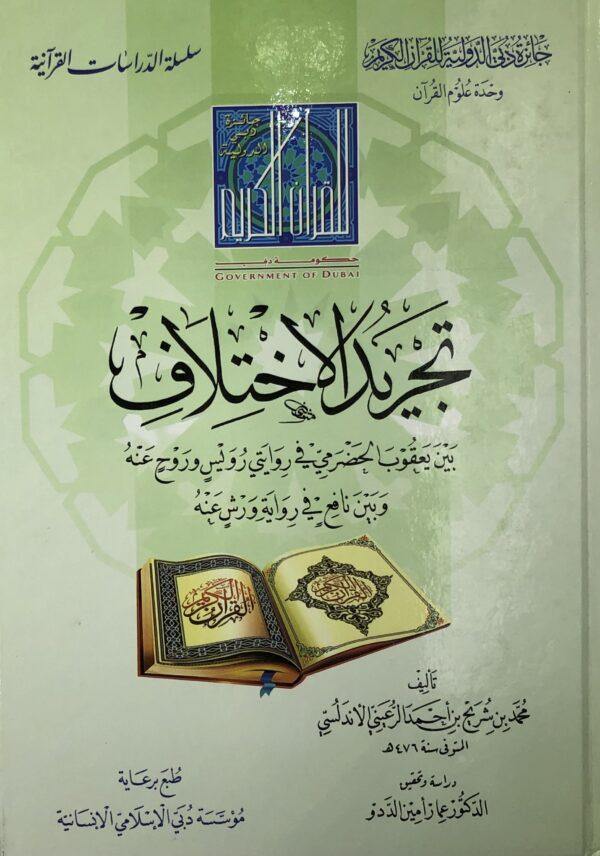 جائزة دبي الدولية للقرآن الكريم
وحدة علوم القرآن
سلسلة الدراسات القرآنية
جائزة
دبي
الدولية
للقرآن الكريم
حكومة دبي
GOVERNMENT OF DUBAI
تجريد الاختلاف
بين يعقوب الحضرمي في روايتي رويس وروح عنه
وبين نافع في رواية ورش عنه
القرآن الكريم
القرآن الكريم
تأليف
محمد بن شريح بن أحمد الرعيني الأندلسي
المتوفى سنة ٤٧٦هـ
دراسة وتحقيق
الدكتور عمار أمين الددو
طبع برعاية
مؤسسة دبي الإسلامي الإنسانية